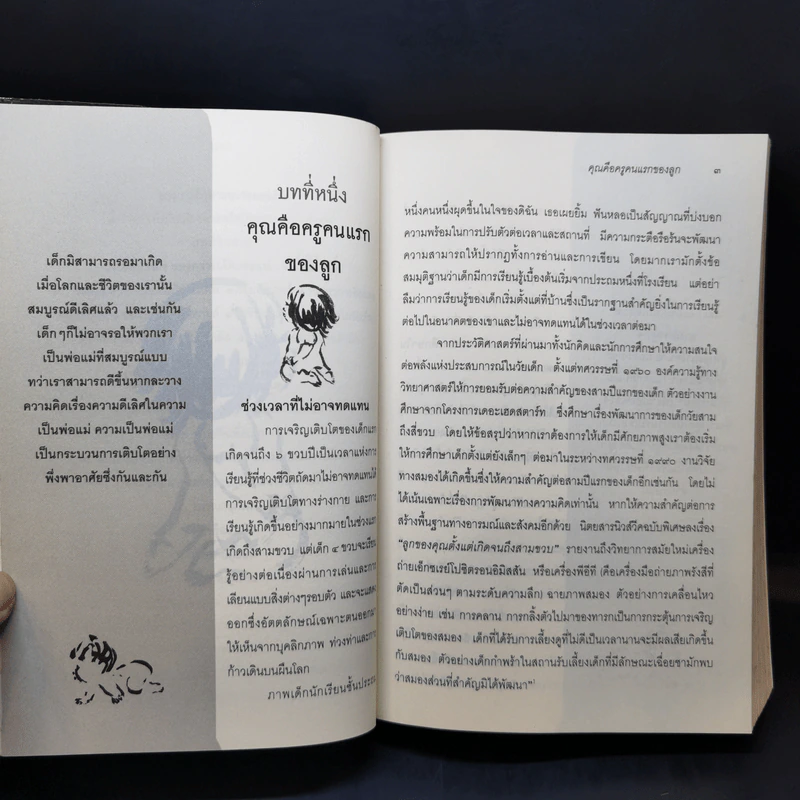 เด็กมิสามารถรอมาเกิด
เมื่อโลกและชีวิตของเรานั้น
สมบูรณ์ดีเลิศแล้ว และเช่นกัน
เด็กๆก็ไม่อาจรอให้พวกเรา
เป็นพ่อแม่ที่สมบูรณ์แบบ
ทว่าเราสามารถดีขึ้นหากละวาง
ความคิดเรื่องความดีเลิศในความ
เป็นพ่อแม่ ความเป็นพ่อแม่
เป็นกระบวนการเติบโตอย่าง
พึ่งพาอาศัยซึ่งกันและกัน
บทที่หนึ่ง
คุณคือครูคนแรก
ของลูก
ช่วงเวลาที่ไม่อาจทดแทน
การเจริญเติบโตของเด็กแรก
เกิดจนถึง ๖ ขวบปีเป็นเวลาแห่งการ
เรียนรู้ที่ช่วงชีวิตถัดมาไม่อาจทดแทนได้
การเจริญเติบโตทางร่างกาย และการ
เรียนรู้เกิดขึ้นอย่างมากมายในช่วงแรก
เกิดถึงสามขวบ แต่เด็ก ๔ ขวบจะเรียน
รู้อย่างต่อเนื่องผ่านการเล่นและการ
เลียนแบบสิ่งต่างๆรอบตัว และจะแสดง
ออกซึ่งอัตลักษณ์เฉพาะตนออกมา
ให้เห็นจากบุคลิกภาพ ท่วงท่าและการ
ก้าวเดินบนผืนโลก
ภาพเด็กนักเรียนชั้นประถม
คุณคือครูคนแรกของลูก ๓
หนึ่งคนหนึ่งผุดขึ้นในใจของดิฉัน เธอเผยยิ้ม ฟันหลอเป็นสัญญาณที่บ่งบอก
ความพร้อมในการปรับตัวต่อเวลาและสถานที่ มีความกระตือรือร้นจะพัฒนา
ความสามารถให้ปรากฏทั้งการอ่านและการเขียน โดยมากเรามักตั้งข้อ
สมมุติฐานว่าเด็กมีการเรียนรู้เบื้องต้นเริ่มจากประถมหนึ่งที่โรงเรียน แต่อย่า
ลืมว่าการเรียนรู้ของเด็กเริ่มตั้งแต่ที่บ้านซึ่งเป็นรากฐานสำคัญยิ่งในการเรียนรู้
ต่อไปในอนาคตของเขาและไม่อาจทดแทนได้ในช่วงเวลาต่อมา
จากประวัติศาสตร์ที่ผ่านมาทั้งนักคิดและนักการศึกษาให้ความสนใจ
ต่อพลังแห่งประสบการณ์ในวัยเด็ก ตั้งแต่ทศวรรษที่ ๑๙๖๐ องค์ความรู้ทาง
วิทยาศาสตร์ให้การยอมรับต่อความสำคัญของสามปีแรกของเด็ก ตัวอย่างงาน
ศึกษาจากโครงการเดอะเฮดสตาร์ท ซึ่งศึกษาเรื่องพัฒนาการของเด็กวัยสาม
ถึงสี่ขวบ โดยให้ข้อสรุปว่าหากเราต้องการให้เด็กมีศักยภาพสูงเราต้องเริ่ม
ให้การศึกษาเด็กตั้งแต่ยังเล็กๆ ต่อมาในระหว่างทศวรรษที่ ๑๙๙๐ งานวิจัย
ทางสมองได้เกิดขึ้นซึ่งให้ความสำคัญต่อช่วงสามปีแรกของเด็กอีกเช่นกัน โดยไม่
ได้เน้นเฉพาะเรื่องการพัฒนาทางความคิดเท่านั้น หากให้ความสำคัญต่อการ
สร้างพื้นฐานทางอารมณ์และสังคมอีกด้วย นิตยสารนิวส์วีคฉบับพิเศษลงเรื่อง
"ลูกของคุณตั้งแต่เกิดจนถึงสามขวบ" รายงานถึงวิทยาการสมัยใหม่เครื่อง
ถ่ายเอ็กซเรย์โปซิตรอนอิมิสสัน หรือเครื่องพีอีที (คือเครื่องมือถ่ายภาพรังสีที่
ตัดเป็นส่วนๆ ตามระดับความลึก) ฉายภาพสมอง ตัวอย่างการเคลื่อนไหว
อย่างง่าย เช่น การคลาน การกลิ้งตัวไปมาของทารกเป็นการกระตุ้นการเจริญ
เติบโตของสมอง เด็กที่ได้รับการเลี้ยงดูที่ไม่ดีเป็นเวลานานจะมีผลเสียเกิดขึ้น
กับสมอง ตัวอย่างเด็กกำพร้าในสถานรับเลี้ยงเด็กที่มีลักษณะเฉื่อยชามักพบ
ว่าสมองส่วนที่สำคัญมิได้พัฒนา"¹